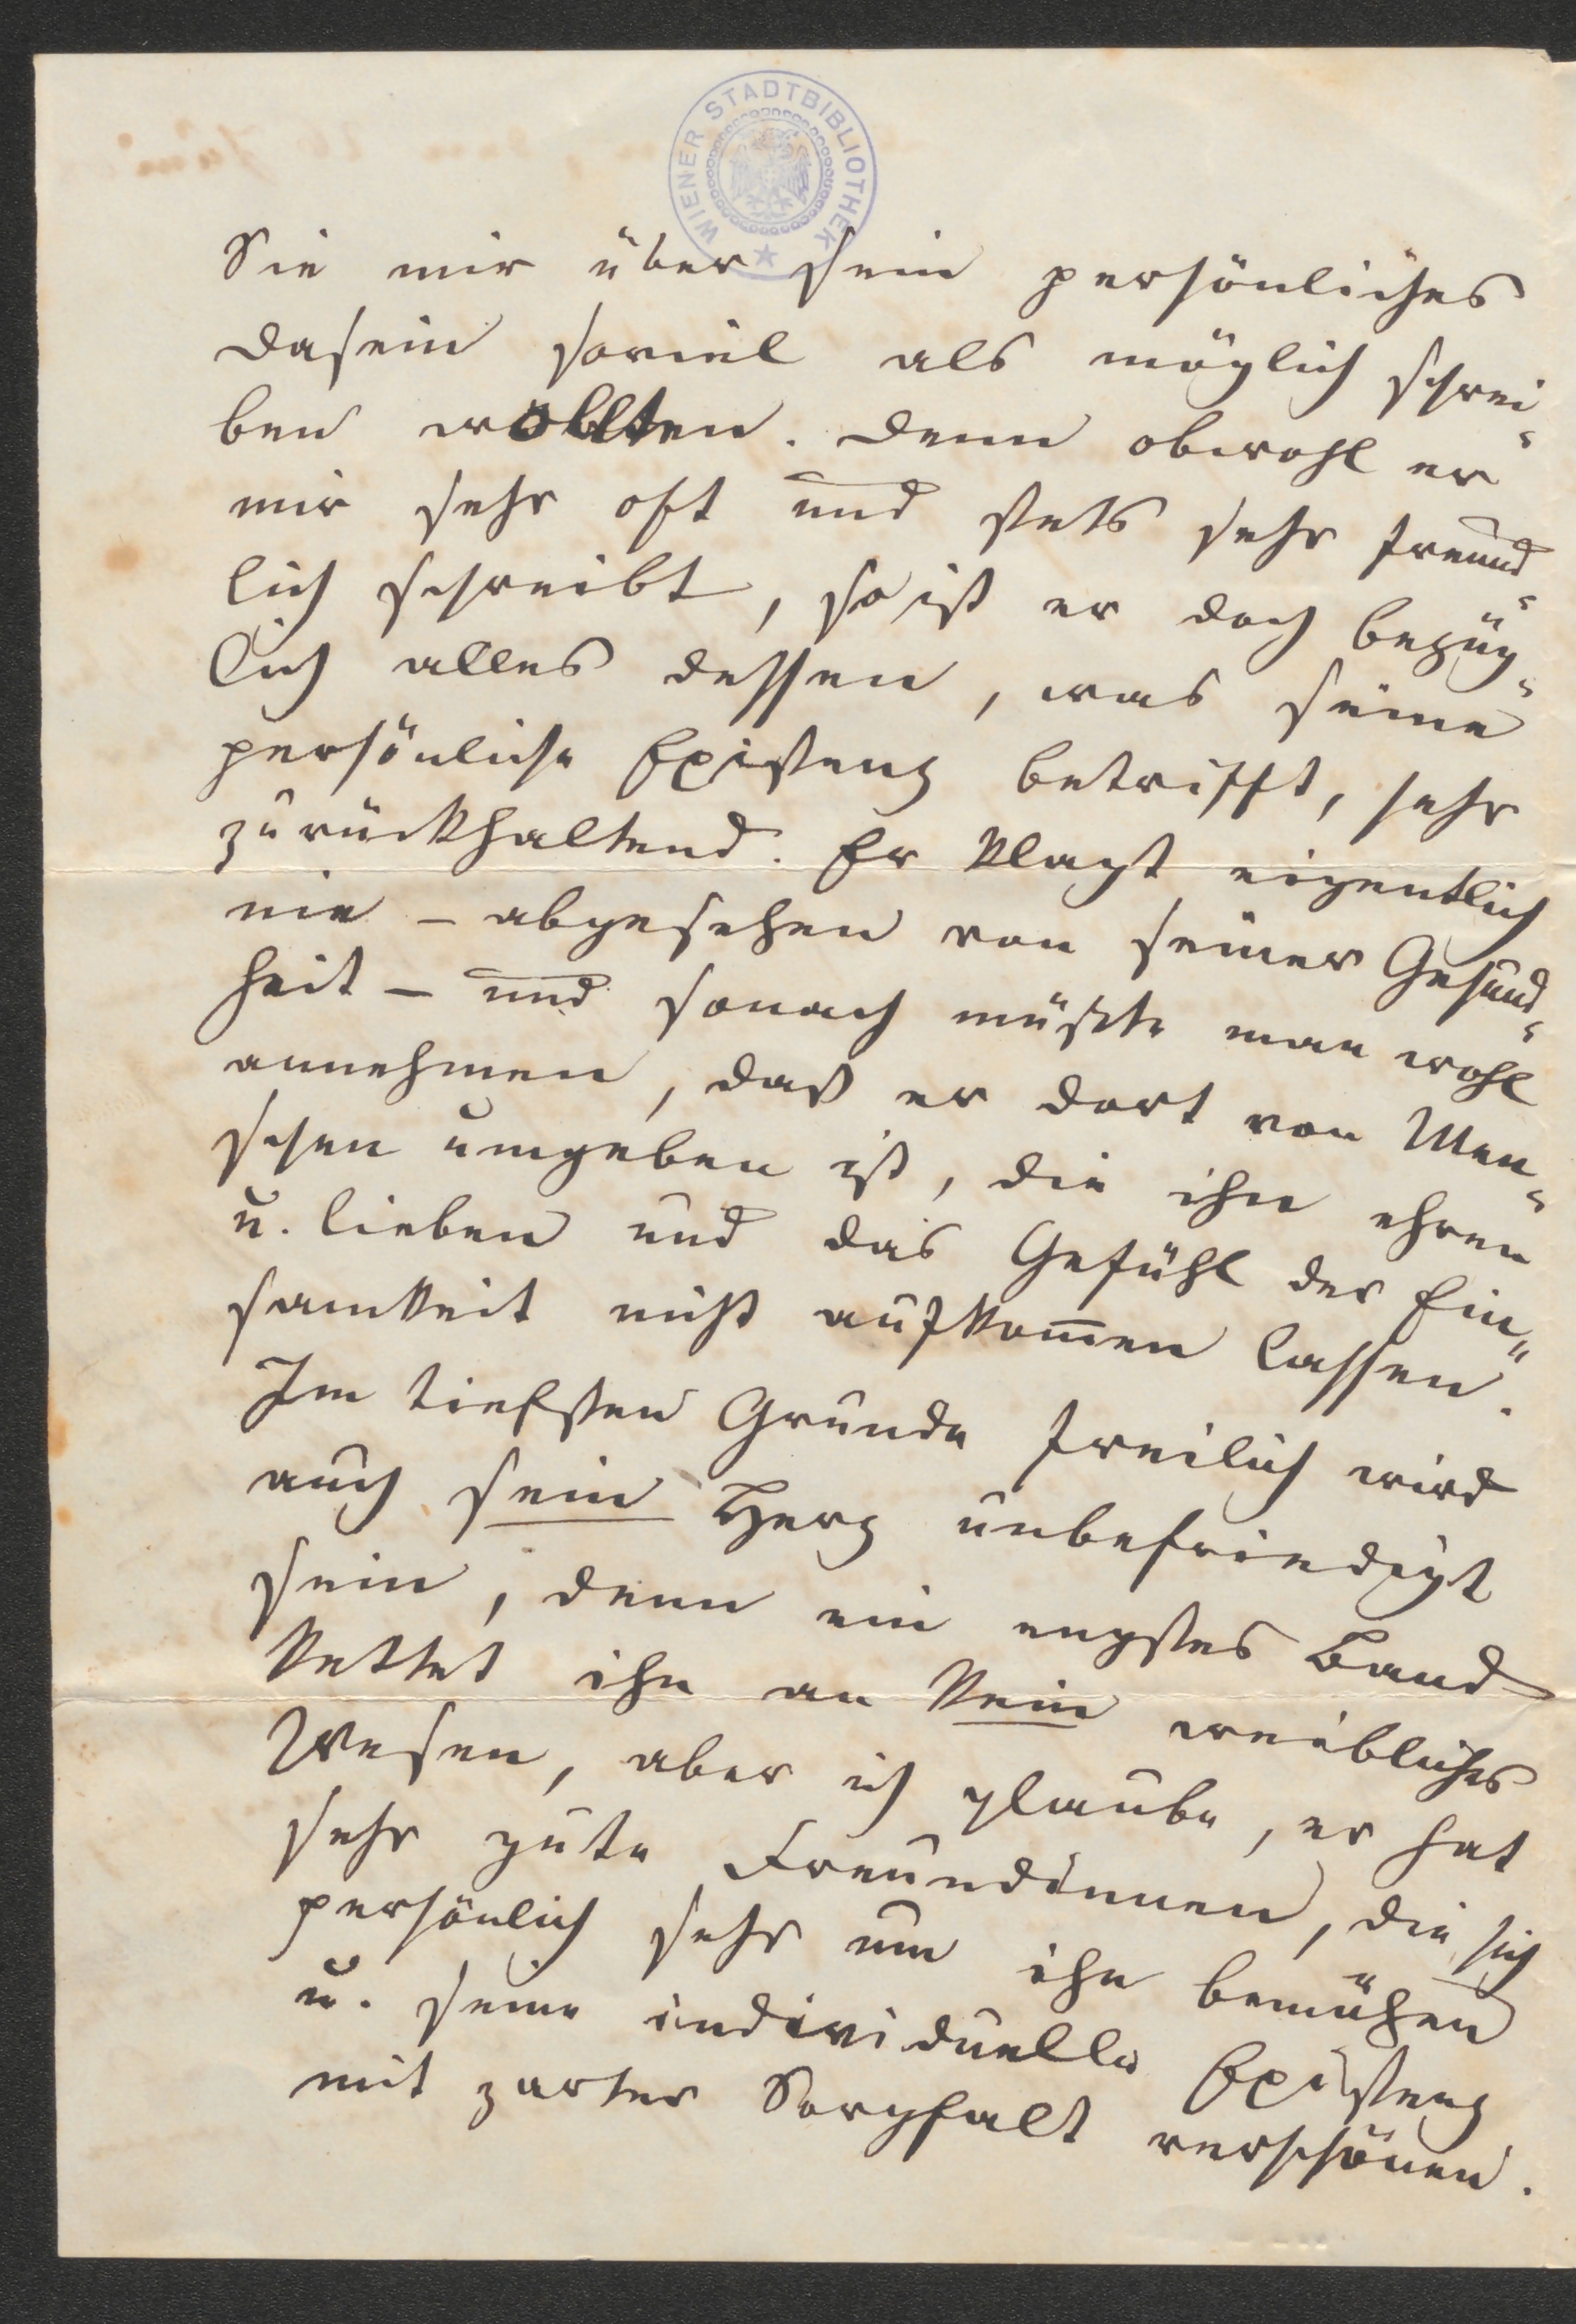 WIENER STADTBIBLIOTHEK
Sie mir über sein persönliches
Dasein soviel als möglich schrei-
ben wollten. Denn obwohl er
mir sehr oft und stets sehr freund-
lich schreibt, so ist er doch bezüg-
lich alles dessen, was seine
persönliche Existenz betrifft, sehr
zurückhaltend. Er klagt eigentlich
nie – abgesehen von seiner Gesund-
heit – und sonach müßte man wohl
annehmen, daß er dort von Men-
schen umgeben ist, die ihn ehren
u. lieben und das Gefühl der Ein-
samkeit nicht aufkom̅en lassen.
Im tiefsten Grunde freilich wird
auch sein Herz unbefriedigt
sein, denn ein engstes Band
kettet ihn an kein weibliches
Wesen, aber ich glaube, er hat
sehr gute Freundinnen, die sich
persönlich sehr um ihn bemühen
u. seine individuelle Existenz
mit zarter Sorgfalt verschönen.